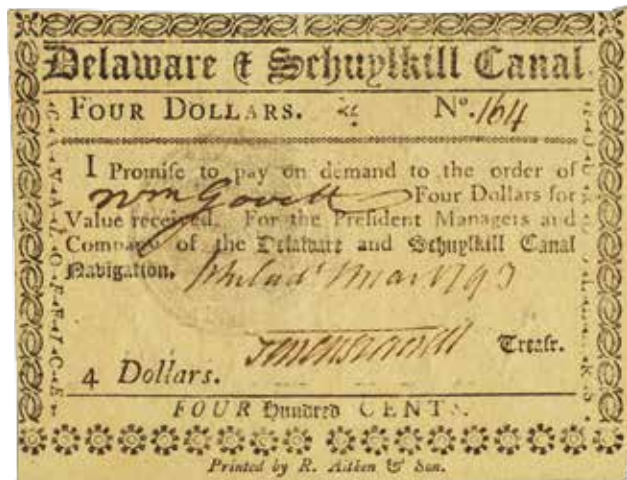 Delaware & Schuylkill Canal.
FOUR DOLLARS. No. 164
I Promise to pay on demand to the order of
Wm Govett Four Dollars for
Value received. For the President Managers and
Company of the Delaware and Schuylkill Canal
Navigation. Philad 1793
Treasr.
4 Dollars.
FOUR Hundred CENTS.
CANAL OFFICE
Printed by R. Aitken & Son.